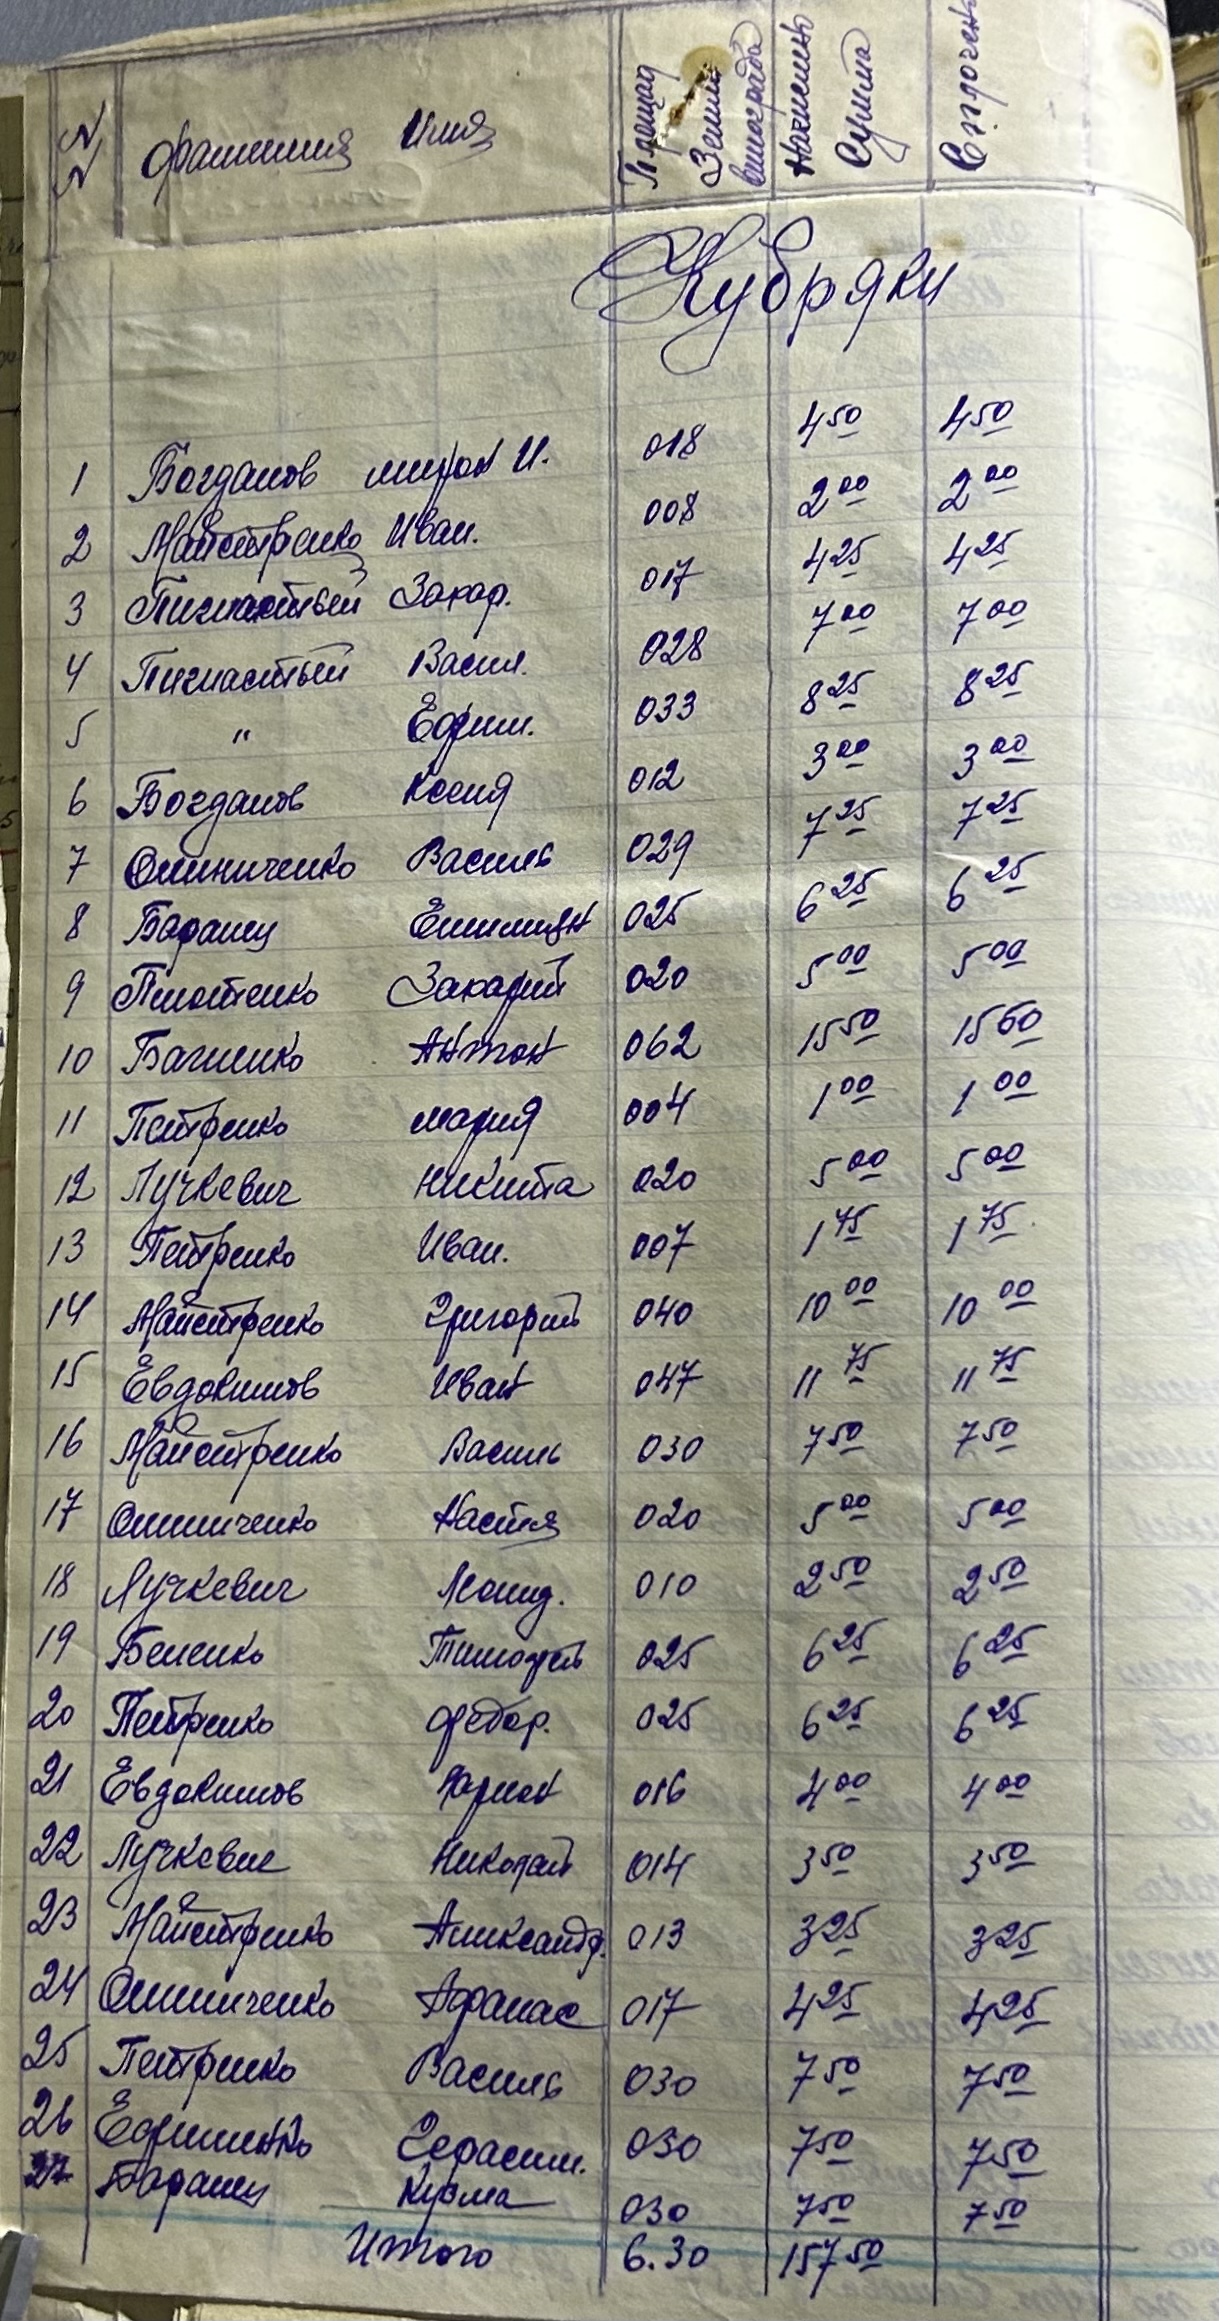 №№ Фамилия Имя Площад Земли винограда Начислено Сумма Сплочено
Кубряки
1 Богданов мирон И. 018 4 50 4 50
2 Майстренко Иван. 008 2 00 2 00
3 Пигнастый Захар. 017 4 25 4 25
4 Пигнастый Васил. 028 7 00 7 00
5 " Ефим. 033 8 25 8 25
6 Богданов Ксения 012 3 00 3 00
7 Олиниченко Василь 029 7 25 7 25
8 Баранец Емилиян 025 6 25 6 25
9 Плотенко Захарий 020 5 00 5 00
10 Багненко Антон 062 15 50 15 60
11 Петренко мария 004 1 00 1 00
12 Лучкевич Никита 020 5 00 5 00
13 Петренко Иван. 007 1 75 1 75
14 Майстренко Григорий 040 10 00 10 00
15 Евдокимов Иван 047 11 75 11 75
16 Майстренко Василь 030 7 50 7 50
17 Олиниченко Настя 020 5 00 5 00
18 Лучкевич Леонид. 010 2 50 2 50
19 Беленко Тимофей 025 6 25 6 25
20 Петренко Федор. 025 6 25 6 25
21 Евдокимов Ларион 016 4 00 4 00
22 Лучкевич Николай 014 3 50 3 50
23 Майстренко Александр. 013 3 25 3 25
24 Олиниченко Афанас 017 4 25 4 25
25 Петренко Василь 030 7 50 7 50
26 Ефименко Герасим. 030 7 50 7 50
27 Баранец Кузма 030 7 50 7 50
Итого 6.30 157 50